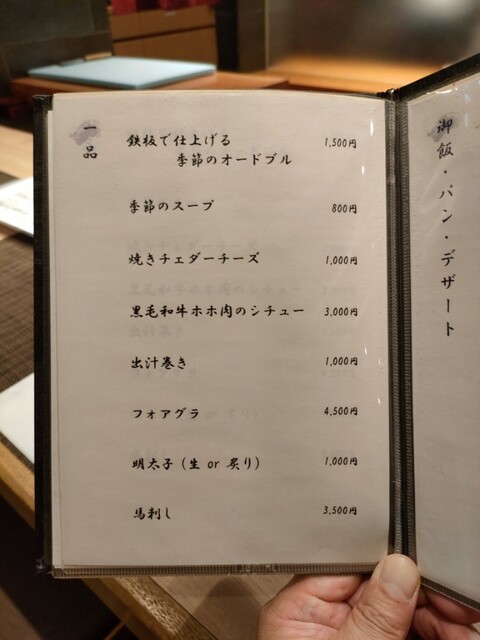 一品
鉄板で仕上げる
季節のオードブル 1,500円
季節のスープ 800円
焼きチェダーチーズ 1,000円
黒毛和牛ホホ肉のシチュー 3,000円
出汁巻き 1,000円
フォアグラ 4,500円
明太子（生 or 炙り） 1,000円
馬刺し 3,500円
御飯・パン・デザート